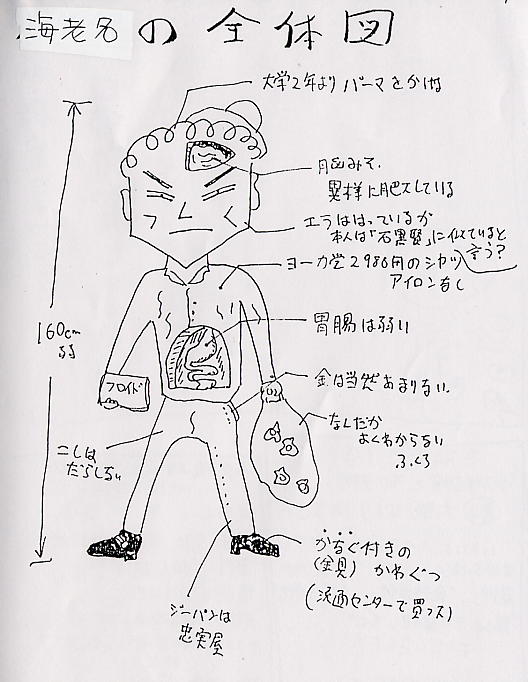 海老名の全体図
大学2年より パーマをかける
脳みそ。
異様に肥大している
エラははっているが
本人は「石黒賢」に似ていると
言う?
ヨーカ堂2980円のシャツ
アイロンなし
160cm
弱
胃腸は弱い
フロイト
金は当然あまりない。
なんだか
よくわからない
ふくろ
こしは
だらしない
かなぐ付きの
(金具) かわぐつ
ジーパンは
忠実屋